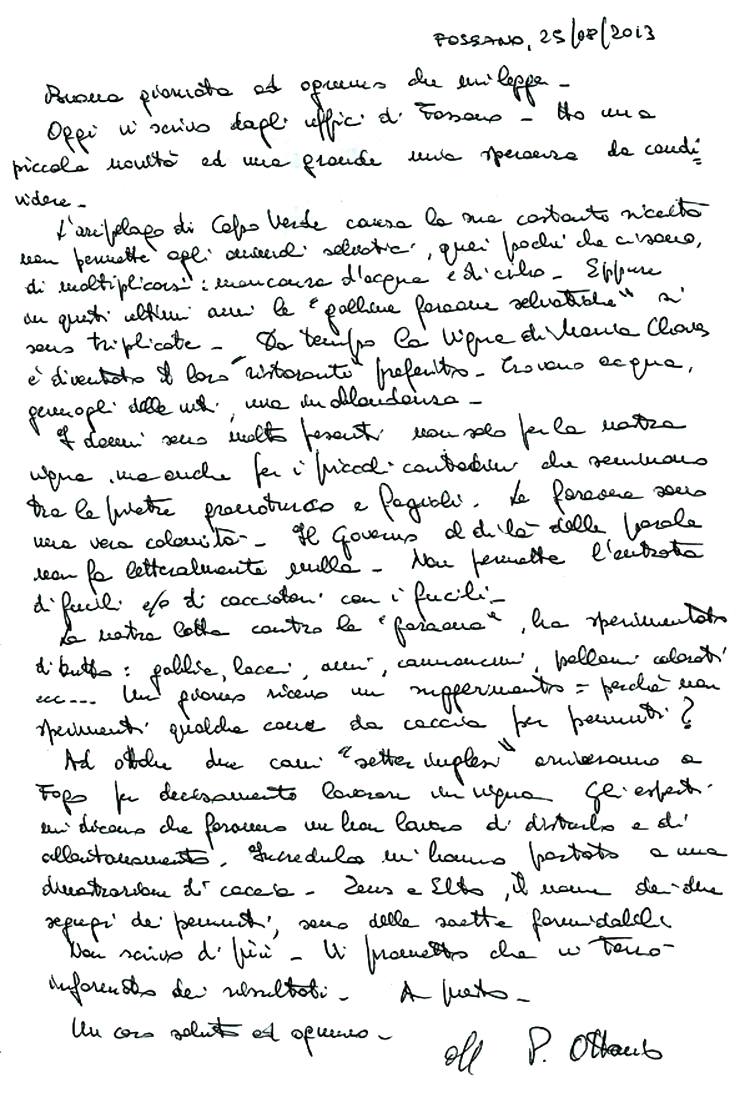 FOSSANO, 25/08/2013
Buona giornata ad ognuno che mi legge -
Oggi vi scrivo dagli uffici di Fossano - Ho una
piccola novità ed una grande mia speranza da condi=
videre -
L'arcipelago di Capo Verde causa la sua costante siccità
non permette agli animali selvatici, quei pochi che ci sono,
di moltiplicarsi: mancanza d'acqua e di cibo - Eppure
in questi ultimi anni le "galline faraone selvatiche" si
sono triplicate - Da tempo la Vigna di Maria Chaves
è diventato il loro "ristorante" preferito - Trovano acqua,
germogli delle viti, uva in abbondanza -
I danni sono molto pesanti non solo per la nostra
vigna, ma anche per i piccoli contadini che seminano
tra le pietre granoturco e fagioli. Le faraone sono
una vera calamità - Il Governo al di là delle parole
non fa letteralmente nulla - Non permette l'entrata
di fucili e/o di cacciatori con i fucili -
La nostra lotta contro le "faraone", ha sperimentato
di tutto: gabbie, lacci, ami, cannoncini, palloni colorati
ecc.... Un giorno ricevo un suggerimento = perchè non
sperimenti qualche cane da caccia per pennuti?
Ad ottobre due cani "setter inglesi" arriveranno a
Fogo per decisamente lavorare in vigna. Gli esperti
mi dicono che faranno un buon lavoro di disturbo e di
allontanamento. Incredulo mi hanno portato a una
dimostrazione di caccia - Zeus e Elto, il nome dei due
segugi dei pennuti, sono delle saette formidabili.
Non scrivo di più - Vi prometto che vi terrò
informato dei risultati - A presto -
Un caro saluto ad ognuno -
P. Ottavio